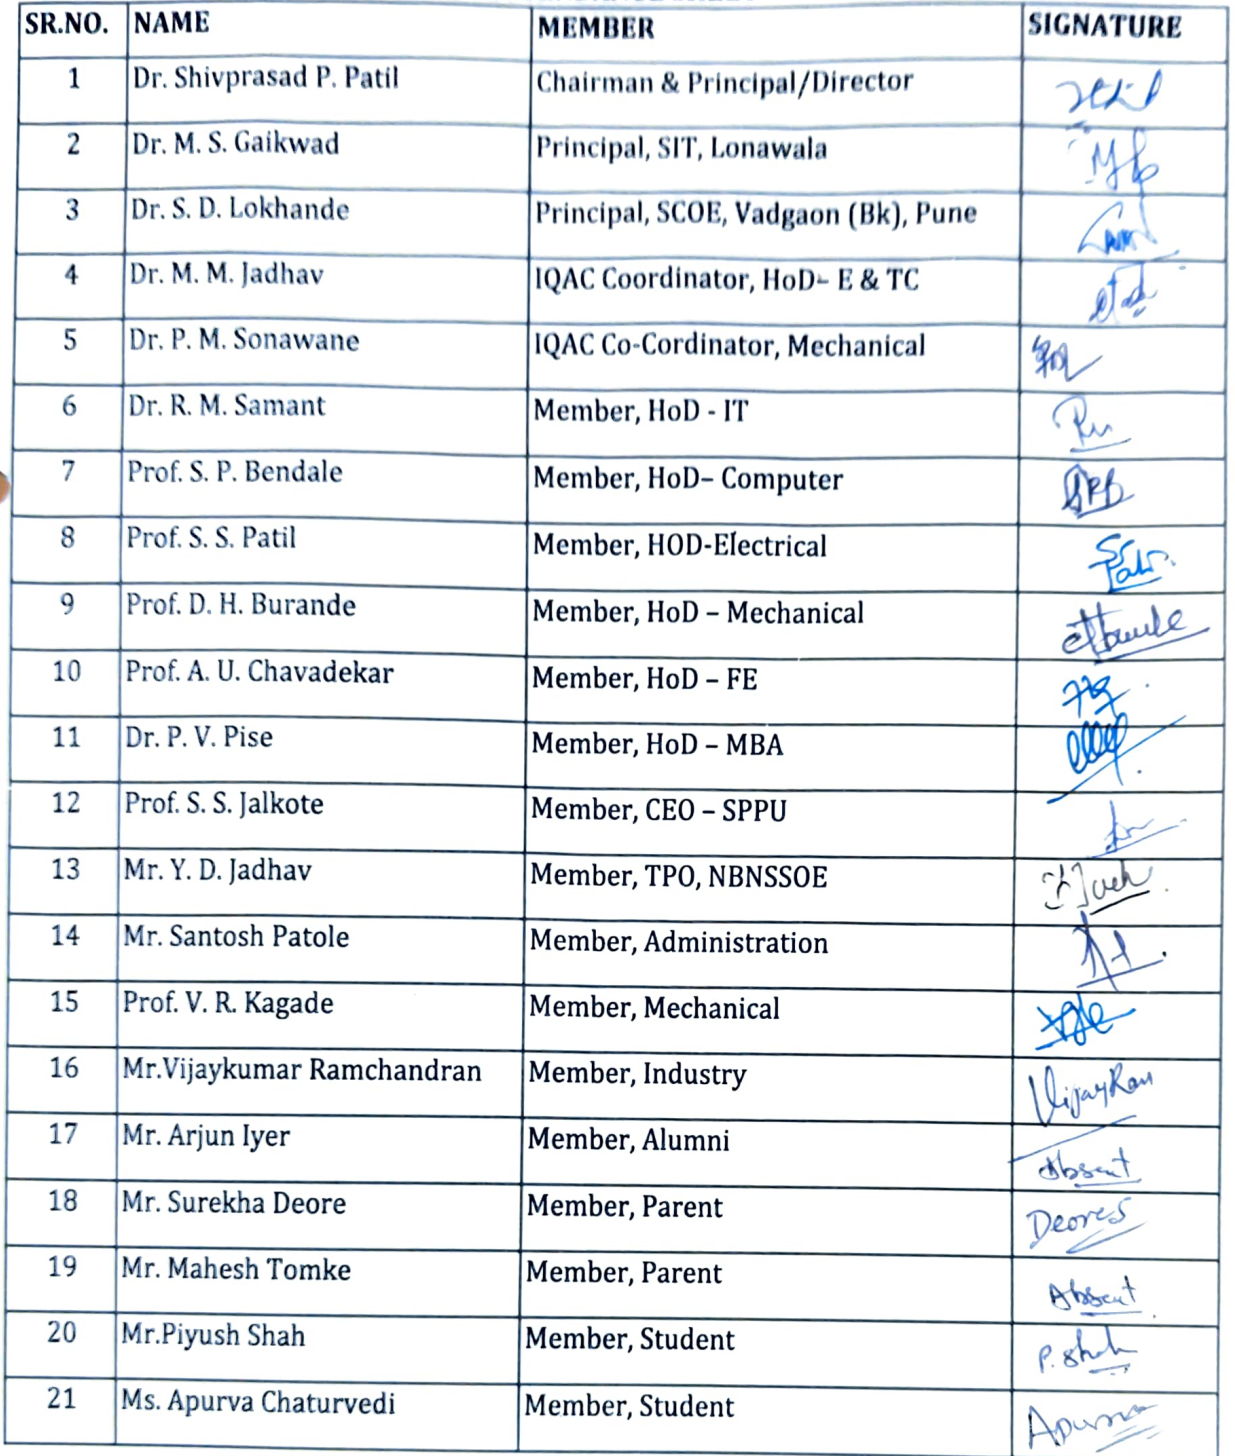 SR.NO. NAME MEMBER SIGNATURE
1 Dr. Shivprasad P. Patil Chairman & Principal/Director
2 Dr. M. S. Gaikwad Principal, SIT, Lonawala
3 Dr. S. D. Lokhande Principal, SCOE, Vadgaon (Bk), Pune
4 Dr. M. M. Jadhav IQAC Coordinator, HoD– E & TC
5 Dr. P. M. Sonawane IQAC Co-Cordinator, Mechanical
6 Dr. R. M. Samant Member, HoD - IT
7 Prof. S. P. Bendale Member, HoD– Computer SPB
8 Prof. S. S. Patil Member, HOD-Electrical
9 Prof. D. H. Burande Member, HoD – Mechanical
10 Prof. A. U. Chavadekar Member, HoD – FE
11 Dr. P. V. Pise Member, HoD – MBA
12 Prof. S. S. Jalkote Member, CEO – SPPU
13 Mr. Y. D. Jadhav Member, TPO, NBNSSOE
14 Mr. Santosh Patole Member, Administration
15 Prof. V. R. Kagade Member, Mechanical
16 Mr.Vijaykumar Ramchandran Member, Industry VijayRam
17 Mr. Arjun Iyer Member, Alumni Absent
18 Mr. Surekha Deore Member, Parent DeoreS
19 Mr. Mahesh Tomke Member, Parent Absent
20 Mr.Piyush Shah Member, Student P. Shah
21 Ms. Apurva Chaturvedi Member, Student Apurva